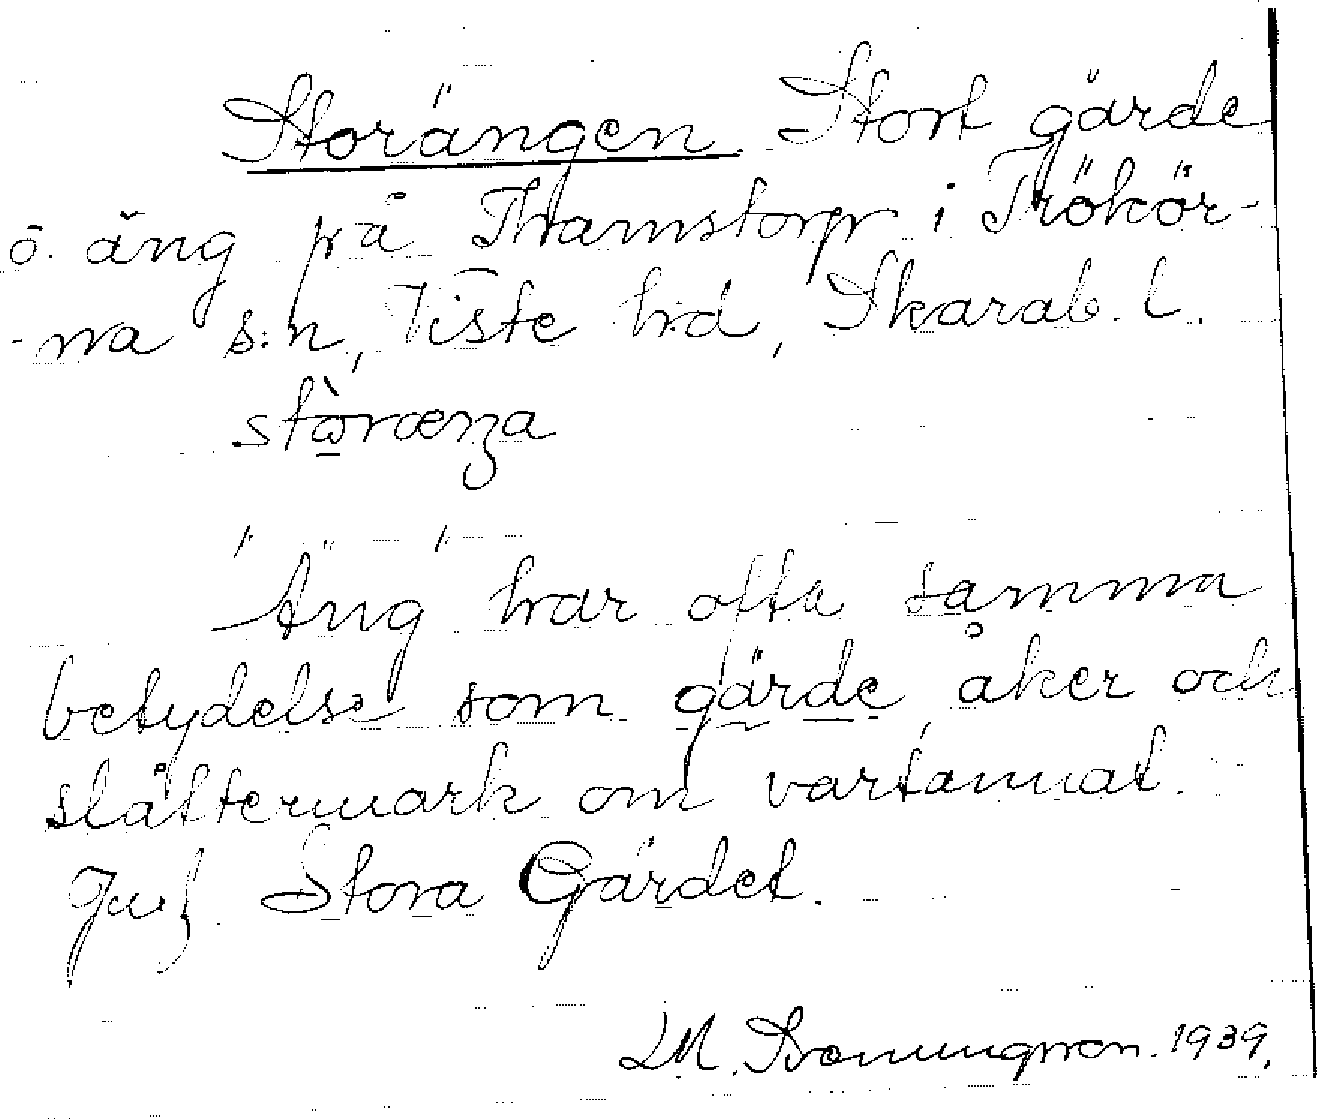 Storängen. Stort gärde
o. äng på Thamstorp i Trökör-
-na s:n, Viste hd, Skarab. l.
stòræŋa
"Äng" har ofta samma
betydelse som gärde, åker och
slåttermark om vartannat.
Jmf. Stora Gärdet.
LM. 1939.